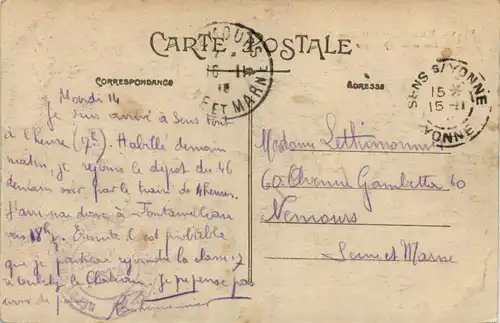 CARTE POSTALE
CORRESPONDANCE
ADRESSE
NEMOURS
16-11
SEINE ET MARNE
SENS S/YONNE
15
15-11
YONNE
Mardi 14
Je suis arrivé à Sens tout
à l'heure (7h). Habillé demain
matin, je rejoins le dépôt du 46
demain soir par le train de 4 heures.
J'arriverai donc à Fontainebleau
vers 18h. Ensuite il est probable
que je partirai rejoindre la classe 17
à le Château. Je ne pense pas
avoir de
Madame Lethimonnier
60 Avenue Gambetta 60
Nemours
Seine et Marne